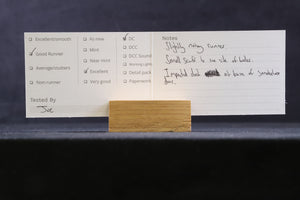 Excellent/smooth
Good Runner
Average/stutters
Non runner
Tested By
Joe
As new
Mint
Near mint
Excellent
Very good
DC
DCC
DCC Sound
Working Lights
Detail pack
Paperwork
Notes
Slightly noisy runner.
Small scuff to one side of boiler.
Imperfect decal at base of smokebox
door.